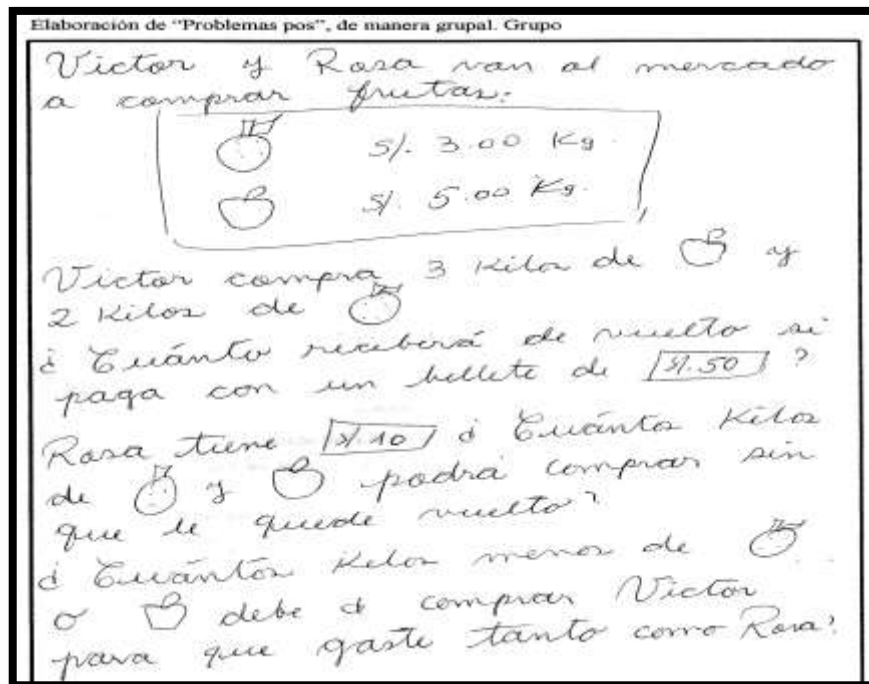 Elaboración de "Problemas pos", de manera grupal. Grupo
Victor y Rosa van al mercado
a comprar frutas:
S/. 3.00 Kg.
S/. 5.00 Kg.
Victor compra 3 Kilos de y
2 Kilos de
¿Cuánto recibirá de vuelto si
paga con un billete de S/. 50?
Rosa tiene S/. 10 ¿Cuántos Kilos
de y podrá comprar sin
que le quede vuelto?
¿Cuántos Kilos menos de
o debe comprar Victor
para que gaste tanto como Rosa?